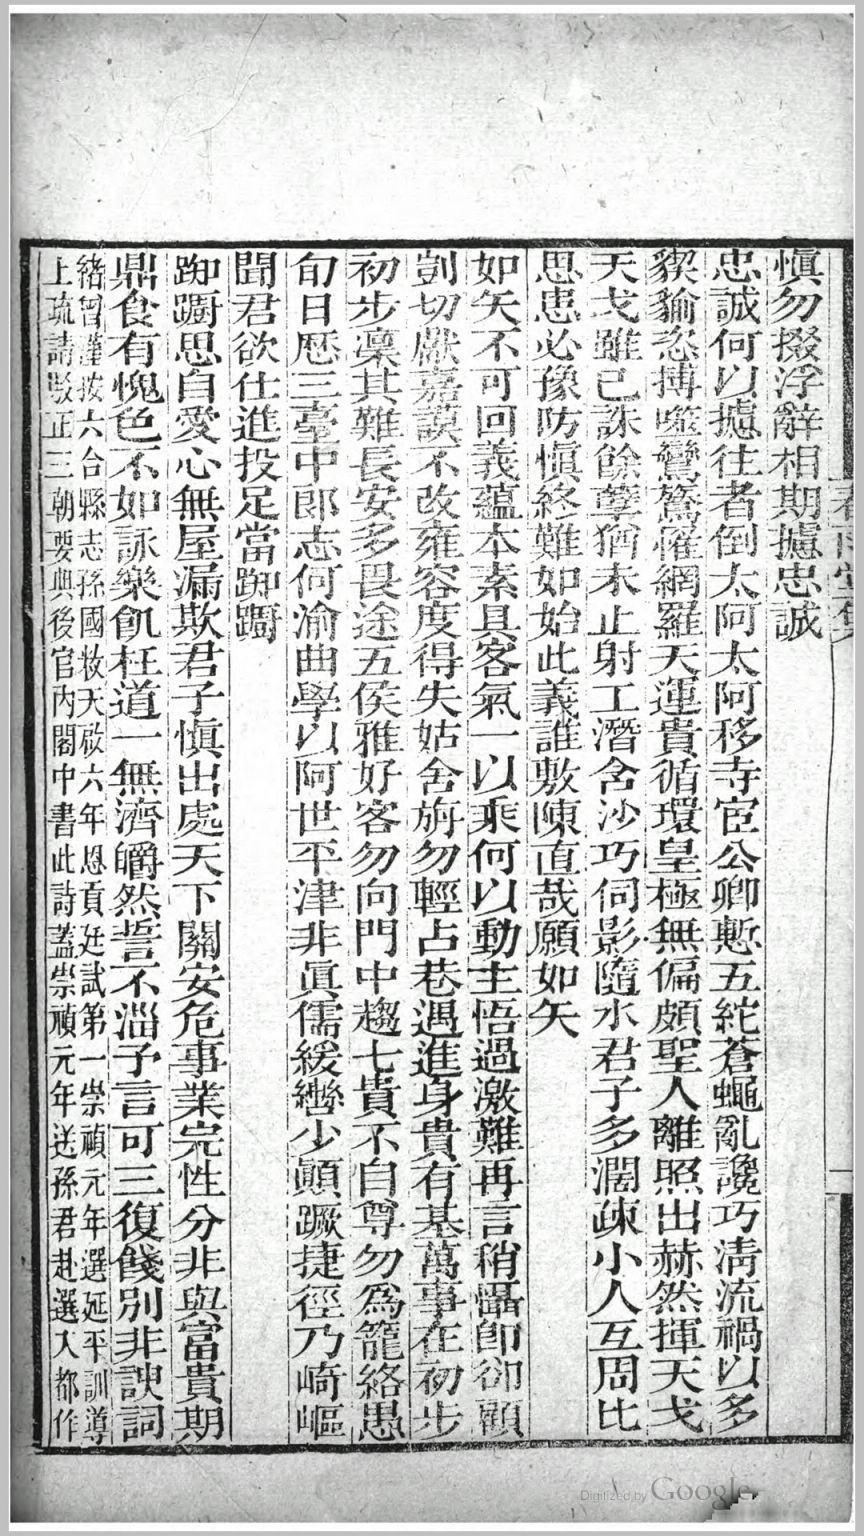 慎勿掇浮辭相期攄忠誠
忠誠何以攄往者倒太阿太阿移寺宦公卿慙五紽蒼蠅亂讒巧淸流禍以多
猰貐恣搏噬鸞鷟罹網羅天運貴循環皇極無偏頗聖人離照出赫然揮天戈
天戈雖已誅餘孽猶未止射工潛含沙巧伺影隨水君子多濶疎小人互周比
思患必豫防愼終難如始此義誰敷陳直哉願如矢
如矢不可回義蘊本素具客氣一以乘何以動主悟過激難再言稍懾卽卻顧
剴切獻嘉謨不改雍容度得失姑舍旃勿輕占巷遇進身貴有基萬事在初步
初步凜其難長安多畏途五侯雅好客勿向門中趨七貴不自尊勿爲籠絡愚
旬日歷三臺中郞志何渝曲學以阿世平津非眞儒緩轡少顚蹶捷徑乃崎嶇
聞君欲仕進投足當踟躕
踟躕思自愛心無屋漏欺君子愼出處天下關安危事業完性分非與富貴期
鼎食有愧色不如詠樂飢枉道一無濟皭然誓不淄予言可三復餞別非諛詞
緒曾謹按六合縣志孫國敉天啟六年恩貢廷試第一崇禎元年選延平訓導
上疏請駁正三朝要典後官內閣中書此詩蓋崇禎元年送孫君赴選入都作
Digitized by Google